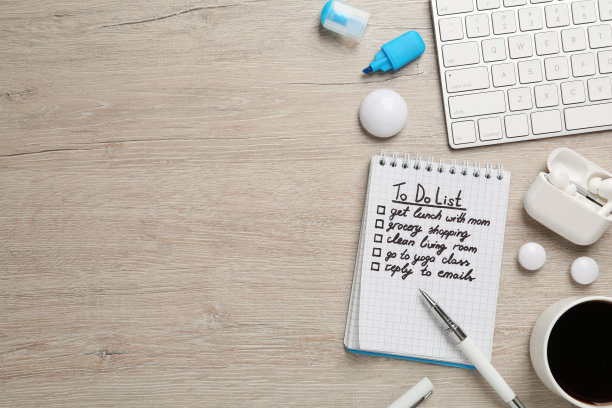 To Do List
get lunch with mom
grocery shopping
clean living room
go to yoga class
reply to emails